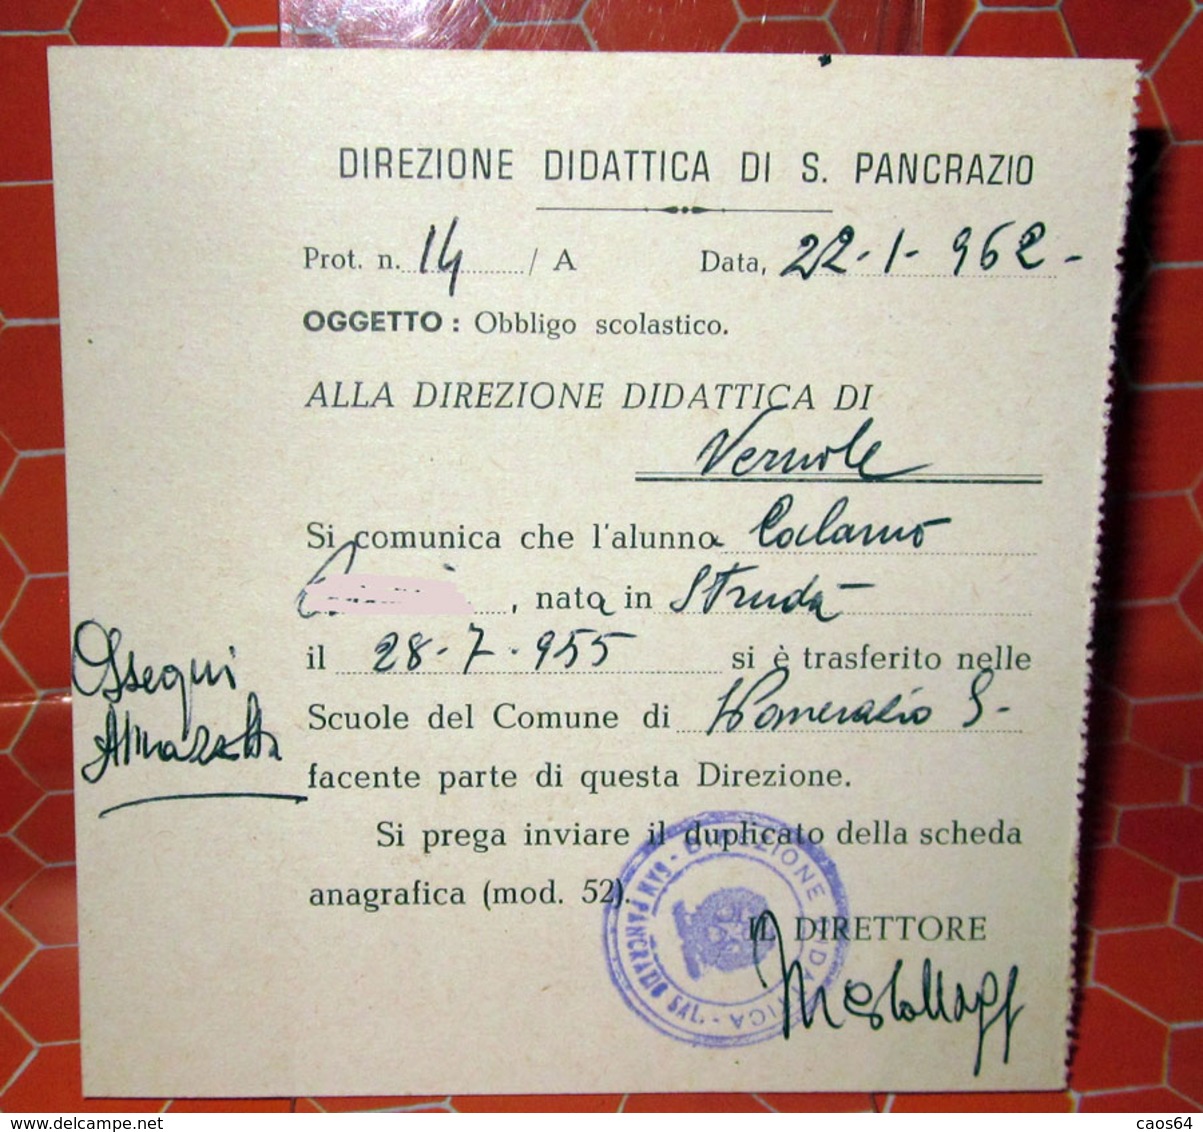 DIREZIONE DIDATTICA DI S. PANCRAZIO
Prot. n. 14 / A Data, 22-1-962-
OGGETTO : Obbligo scolastico.
ALLA DIREZIONE DIDATTICA DI
Vernole
Si comunica che l'alunna Calamo
, nata in Strudà
il 28-7-955 si è trasferito nelle
Scuole del Comune di S. Pancrazio S-
facente parte di questa Direzione.
Si prega inviare il duplicato della scheda
anagrafica (mod. 52).
IL DIRETTORE
Ossequi
DIREZIONE DIDATTICA - SAN PANCRAZIO SAL. -
www.delcampe.net
caos64